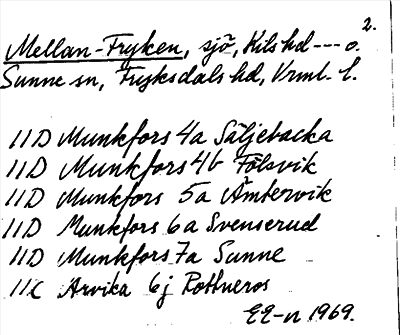 2.
Mellan-Fryken, sjö, Kils hd --- o.
Sunne sn, Fryksdals hd, Vrml. l.
11D Munkfors 4a Säljebacka
11D Munkfors 4b Fölsvik
11D Munkfors 5a Ämtervik
11D Munkfors 6a Svenserud
11D Munkfors 7a Sunne
11C Arvika 6j Rottneros
EE-n 1969.